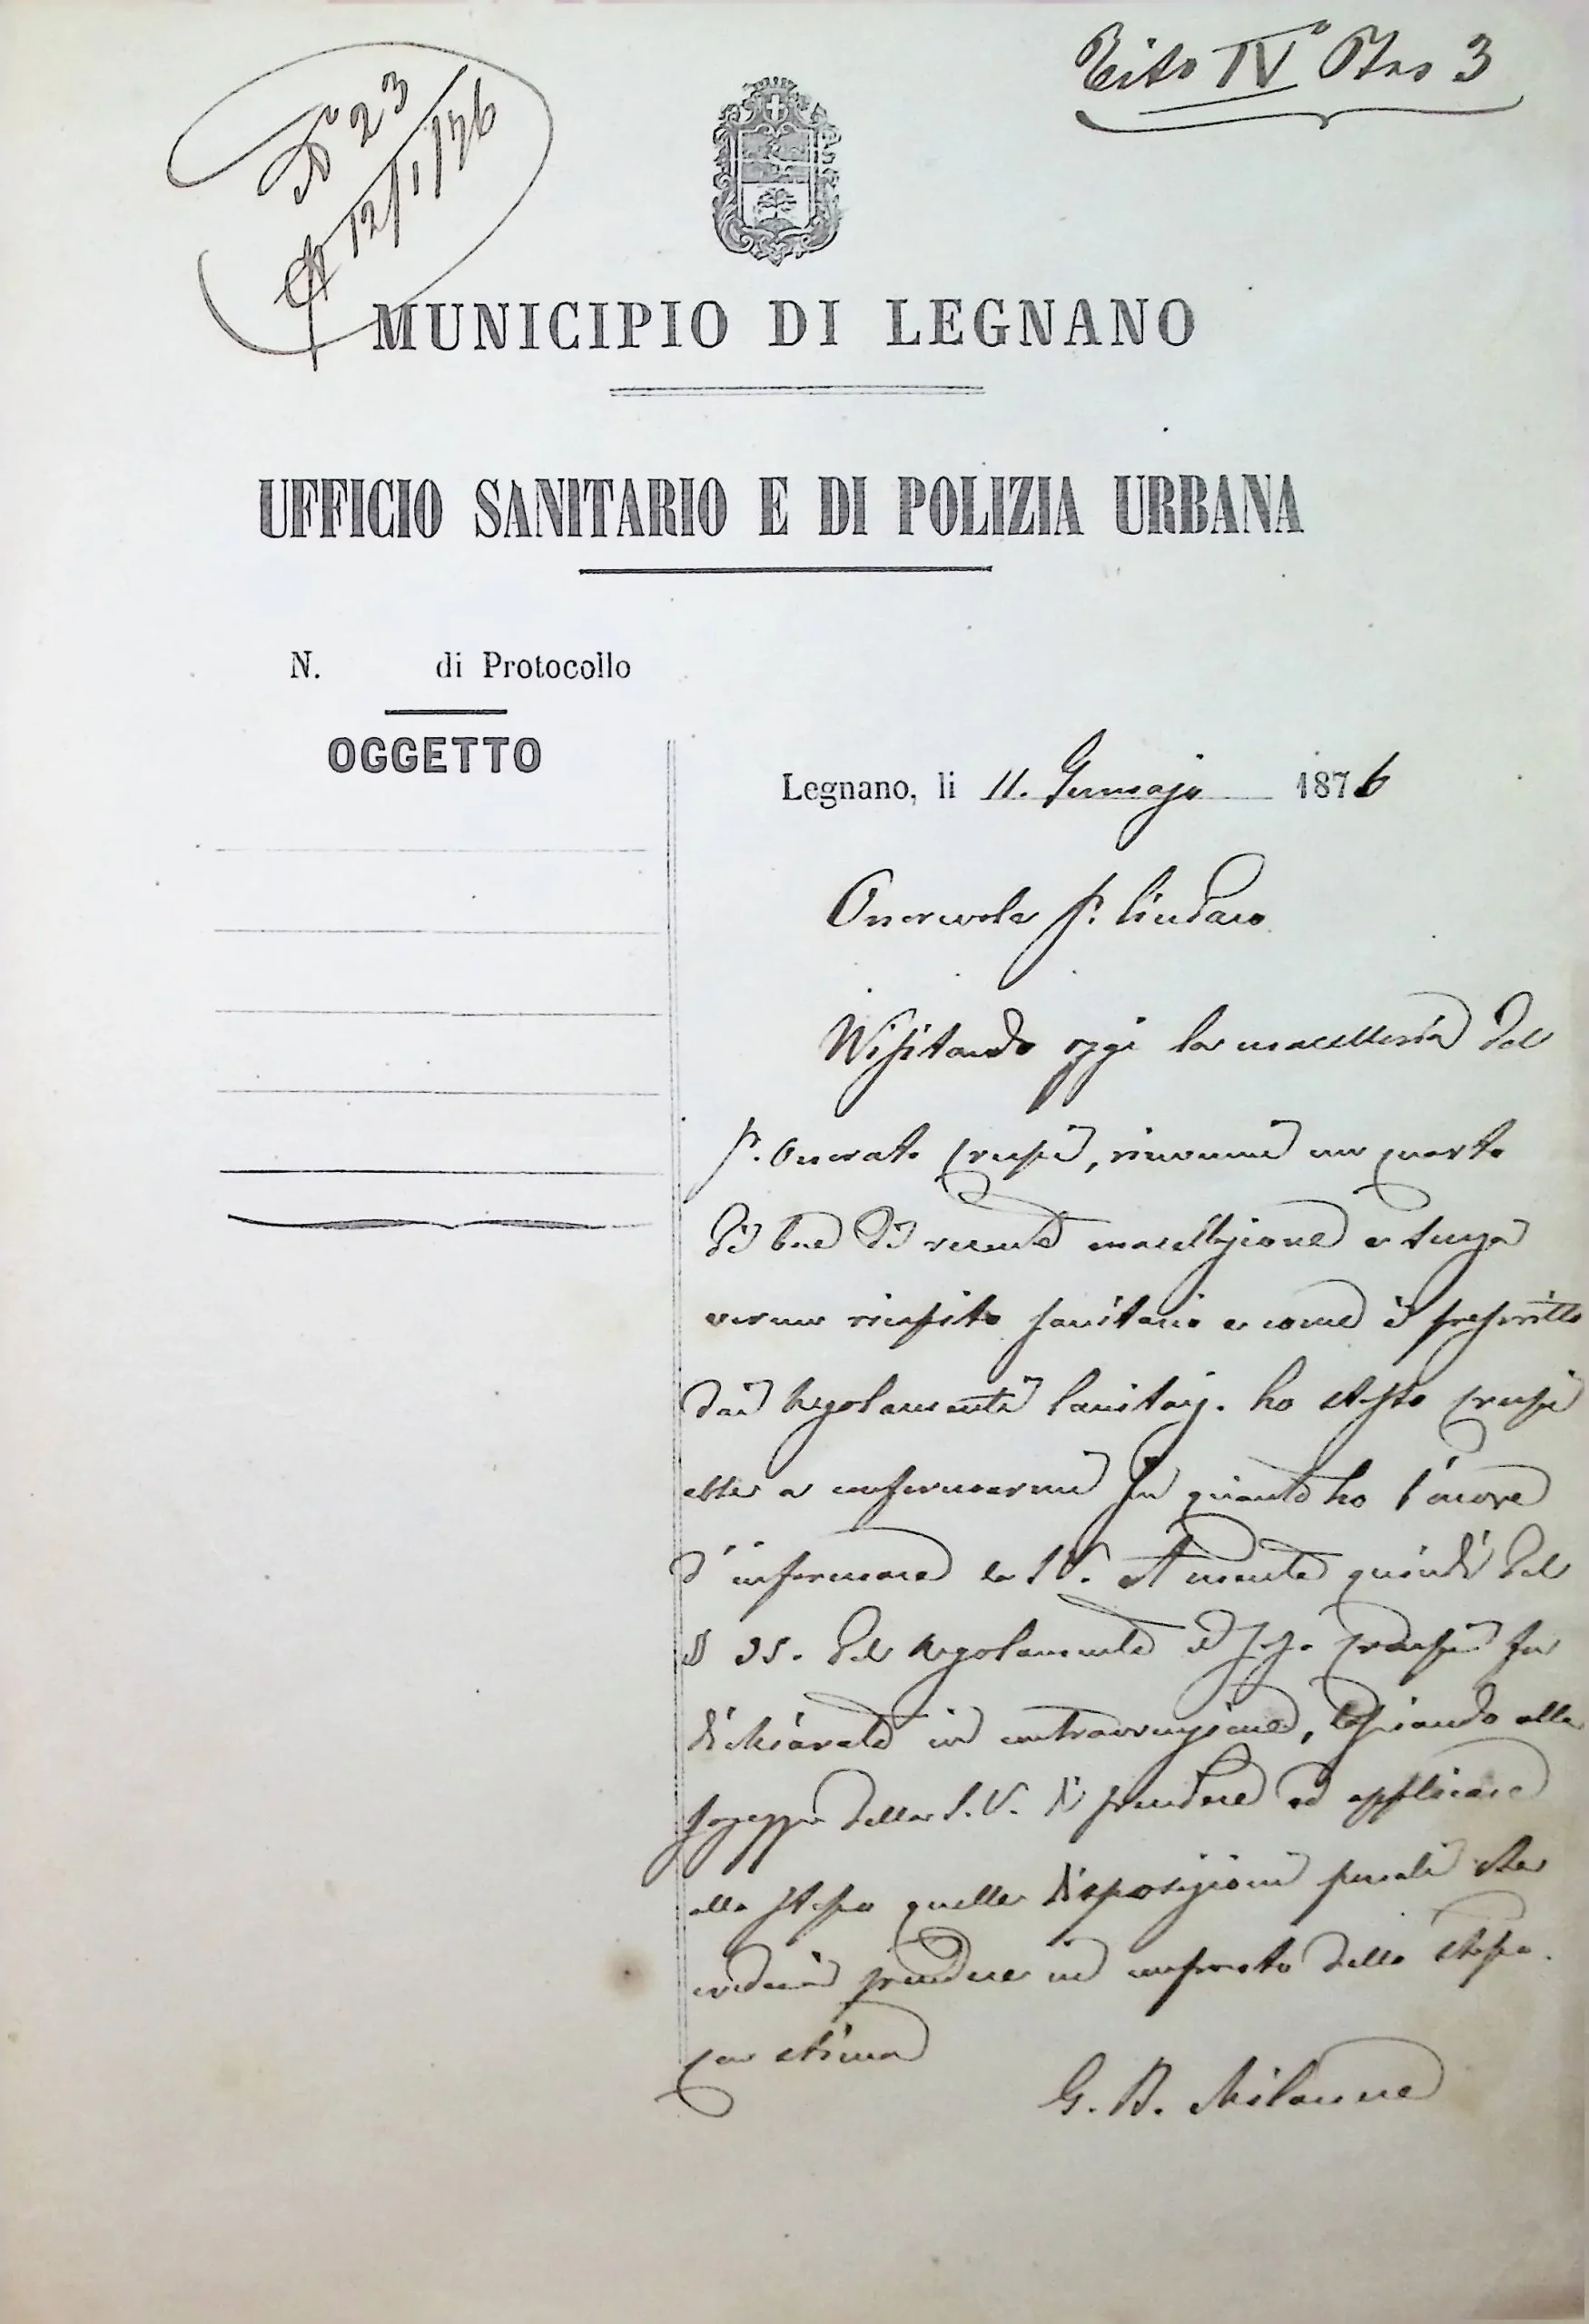 Tito IV° Ptas 3
N° 23
12/1/76
MUNICIPIO DI LEGNANO
UFFICIO SANITARIO E DI POLIZIA URBANA
N. di Protocollo
OGGETTO
Legnano, li 11. Gennajo 1876
Onorevole Sr. Sindaco
Visitando oggi la macelleria del
Sr. Onorato Crespi, rinvenni un quarto
di bue di recente macellazione e senza
verun sanitario e come è prescritto
dai Regolamenti Sanitarj. Lo stesso Crespi
ebbe a confermarmi per quanto ho l'onore
d'informare la S.V. A mente quindi del
§ 35. del Regolamento il Crespi fu
dichiarato in contravvenzione, lasciando alla
saggezza della S.V. di prendere ed applicare
allo stesso quelle disposizioni penali che
crederà prendere in confronto dello stesso.
Con stima
G. B. Milanese